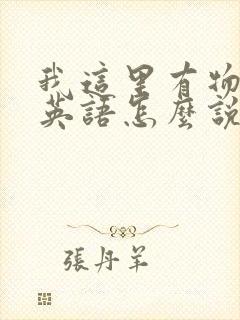 我這里有物
英語怎麼說
張丹羊